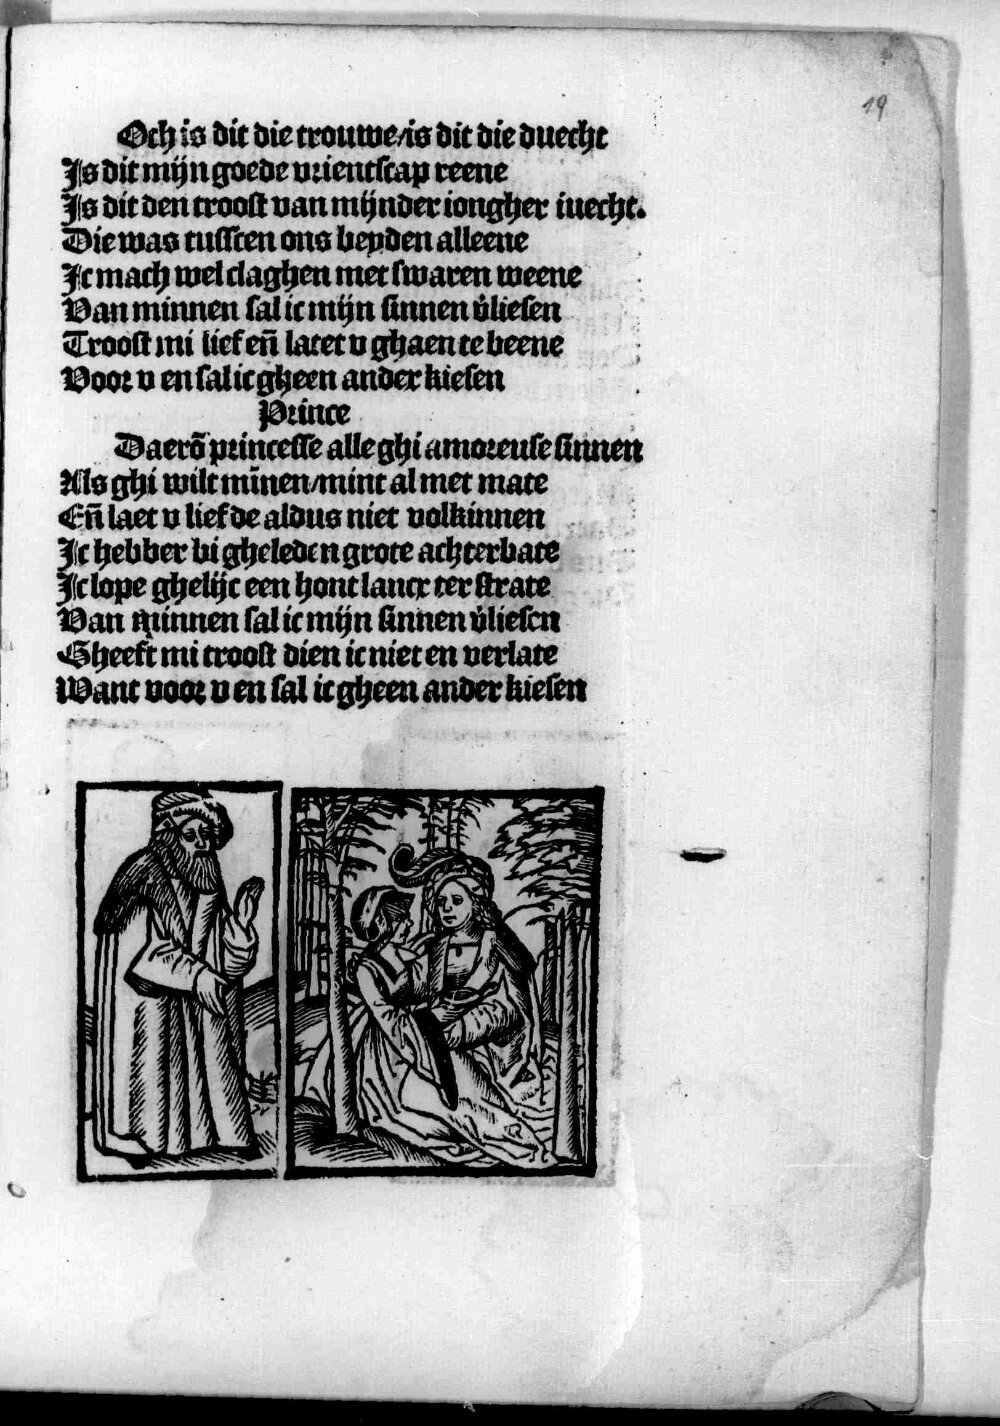 19
Och is dit die trouwe/is dit die duecht
Is dit mijn goede vrientscap reene
Is dit den troost van mijnder iongher iuecht.
Die was tusscen ons beyden alleene
Ic mach wel claghen met swaren weene
Van minnen sal ic mijn sinnen v̓liesen
Troost mi lief en̄ latet v ghaen te beene
Voor v en sal ic gheen ander kiesen
Prince
Daerō princesse alle ghi amoreuse sinnen
Als ghi wilt mīnen/mint al met mate
En̄ laet v liefde aldus niet volkinnen
Ic hebber bi gheleden grote achterbate
Ic lope ghelijc een hont lancx ter strate
Van minnen sal ic mijn sinnen v̓liesen
Gheeft mi troost dien ic niet en verlate
Want voor v en sal ic gheen ander kiesen